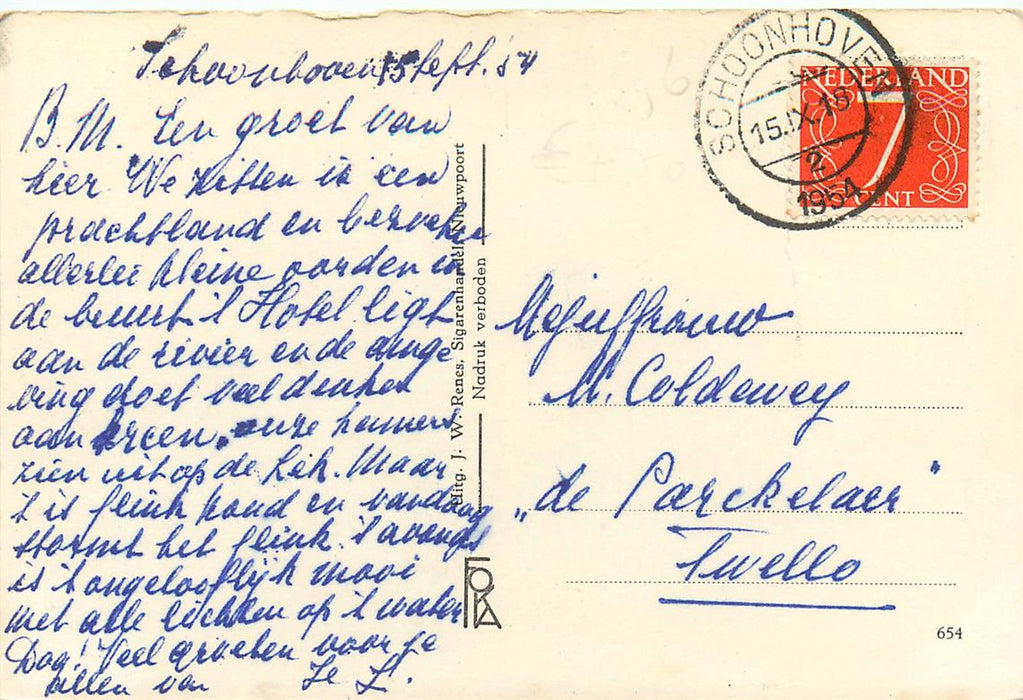 Schoonhoven 15 Sept. '54
B. M. Een groet van
hier. We zitten in een
prachtland en bezoeken
allerlei kleine oorden in
de buurt. 't Hotel ligt
aan de rivier en de omge
ving doet veel denken
aan Arcen. onze kamers
zien uit op de Lek. Maar
't is flink koud en vandaag
stormt het flink. 's avonds
is 't ongelooflijk mooi
met alle lichten op 't water
Dag! Veel groeten voor je
allen van Je
Uitg. J. W. Renes, Sigarenhandel, Nieuwpoort
Nadruk verboden
FOKA
SCHOONHOVEN
15.IX.18
2
1954
NEDERLAND
7
CENT
Mejuffrouw
M. Coldewey
„de Parckelaer"
Twello
654